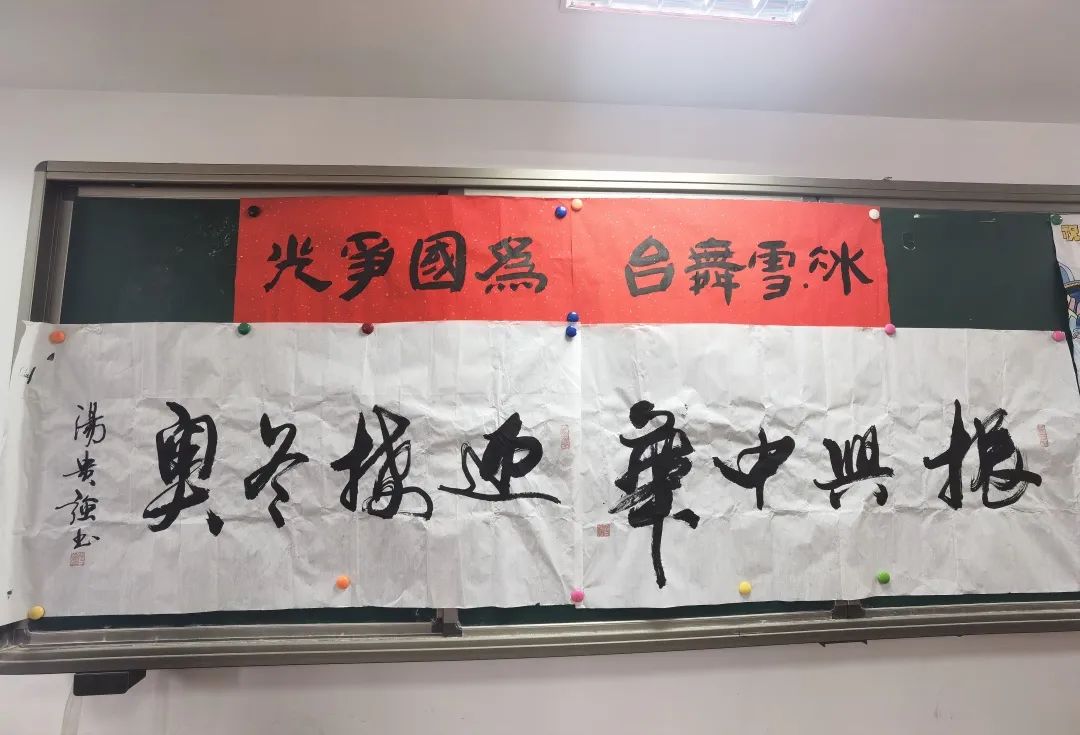 冰雪舞台 爲國爭光
振興中華 迎接冬奧
湯贵強书
祝